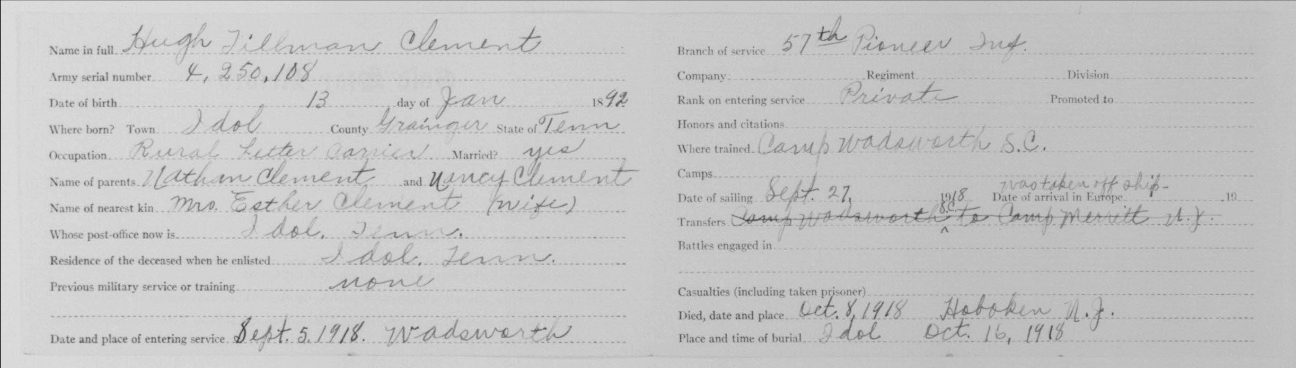 Name in full Hugh Tillman Clement
Army serial number 4,250,108
Date of birth 13 day of Jan 1892
Where born? Town Idol County Grainger State of Tenn
Occupation Rural Letter Carrier Married? yes
Name of parents Nathan Clement and Nancy Clement
Name of nearest kin Mrs. Esther Clement (wife)
Whose post-office now is Idol, Tenn.
Residence of the deceased when he enlisted Idol, Tenn.
Previous military service or training none
Date and place of entering service Sept. 5, 1918. Wadsworth
Branch of service 57th Pioneer Inf.
Company Regiment Division
Rank on entering service Private Promoted to
Honors and citations
Where trained Camp Wadsworth S.C.
Camps
was taken off ship-
Date of sailing Sept. 27, 1918 Date of arrival in Europe 19
S.C.
Transfers Camp Wadsworth ^ to Camp Merritt N.J.
Battles engaged in
Casualties (including taken prisoner)
Died, date and place Oct. 8, 1918 Hoboken N.J.
Place and time of burial Idol Oct. 16, 1918